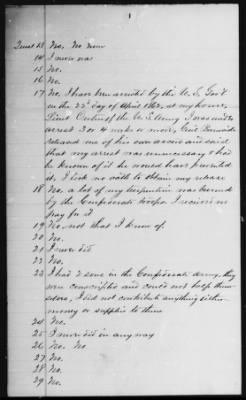 1
Quest 13 No, No never
14 I never was
15 No.
16 No.
17 No, I have been arrested by the U. S. Govt
in the 22d day of April 1862, at my house,
Lieut of the U.S. Army I was under
arrest 3 or 4 weeks or more, Genl Burnside
released me of his own accord and said
that my arrest was unnecessary & had
he known of it he would have prevented
it, I took no oath to obtain my release
18 No, a lot of my turpentine was burned
by the Confederate troops I received no
pay for it
19 No, not that I know of,
20 No.
21 I never did
22 No.
23 I had 2 sons in the Confederate army, they
were conscripted and could not help them
selves, I did not contribute anything either
money or supplies to them
24 No.
25 I never did in any way
26 No. No
27 No.
28 No.
29 No.